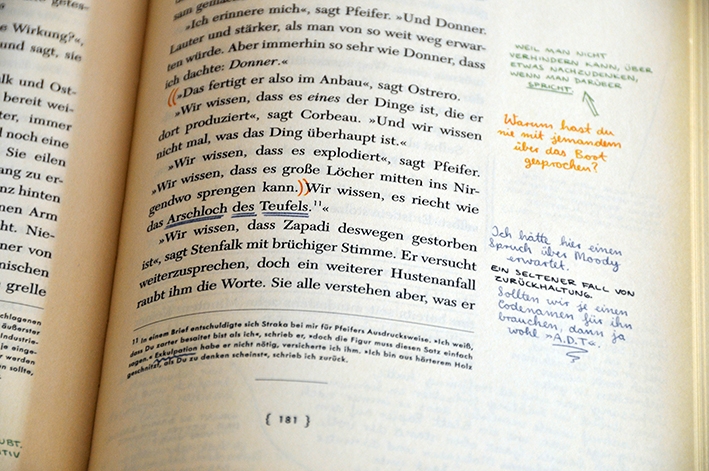 Wirkung?«,
und sagt, sie
alk und Ost-
bereit wei-
ter, immer
d noch eine
Sie eilen
ang zu er-
nz hinten
nen Arm
ht. Nie-
ner von
nischen
grelle
schlagenen
äußerster
Industrie-
je einge-
sen wurden
sollte,
UBT.
TIV
»Ich erinnere mich«, sagt Pfeifer. »Und Donner.
Lauter und stärker, als man von so weit weg erwar-
ten würde. Aber immerhin so sehr wie Donner, dass
ich dachte: Donner.«
»Das fertigt er also im Anbau«, sagt Ostrero.
»Wir wissen, dass es eines der Dinge ist, die er
dort produziert«, sagt Corbeau. »Und wir wissen
nicht mal, was das Ding überhaupt ist.«
»Wir wissen, dass es explodiert«, sagt Pfeifer.
»Wir wissen, dass es große Löcher mitten ins Nir-
gendwo sprengen kann. Wir wissen, es riecht wie
das Arschloch des Teufels.¹¹«
»Wir wissen, dass Zapadi deswegen gestorben
ist«, sagt Stenfalk mit brüchiger Stimme. Er versucht
weiterzusprechen, doch ein weiterer Hustenanfall
raubt ihm die Worte. Sie alle verstehen aber, was er
11 In einem Brief entschuldigte sich Straka bei mir für Pfeifers Ausdrucksweise. »Ich weiß,
dass Du zarter besaitet bist als ich«, schrieb er, »doch die Figur muss diesen Satz einfach
sagen.« Exkulpation habe er nicht nötig, versicherte ich ihm. »Ich bin aus härterem Holz
geschnitzt, als Du zu denken scheinst«, schrieb ich zurück.
{ 181 }
WEIL MAN NICHT
VERHINDERN KANN, ÜBER
ETWAS NACHZUDENKEN,
WENN MAN DARÜBER
SPRICHT.
Warum hast du
nie mit jemandem
über das Boot
gesprochen?
Ich hätte hier einen
Spruch über Moody
erwartet.
EIN SELTENER FALL VON
ZURÜCKHALTUNG.
Sollten wir je einen
Codenamen für ihn
brauchen, dann ja
wohl »A.D.T.«.